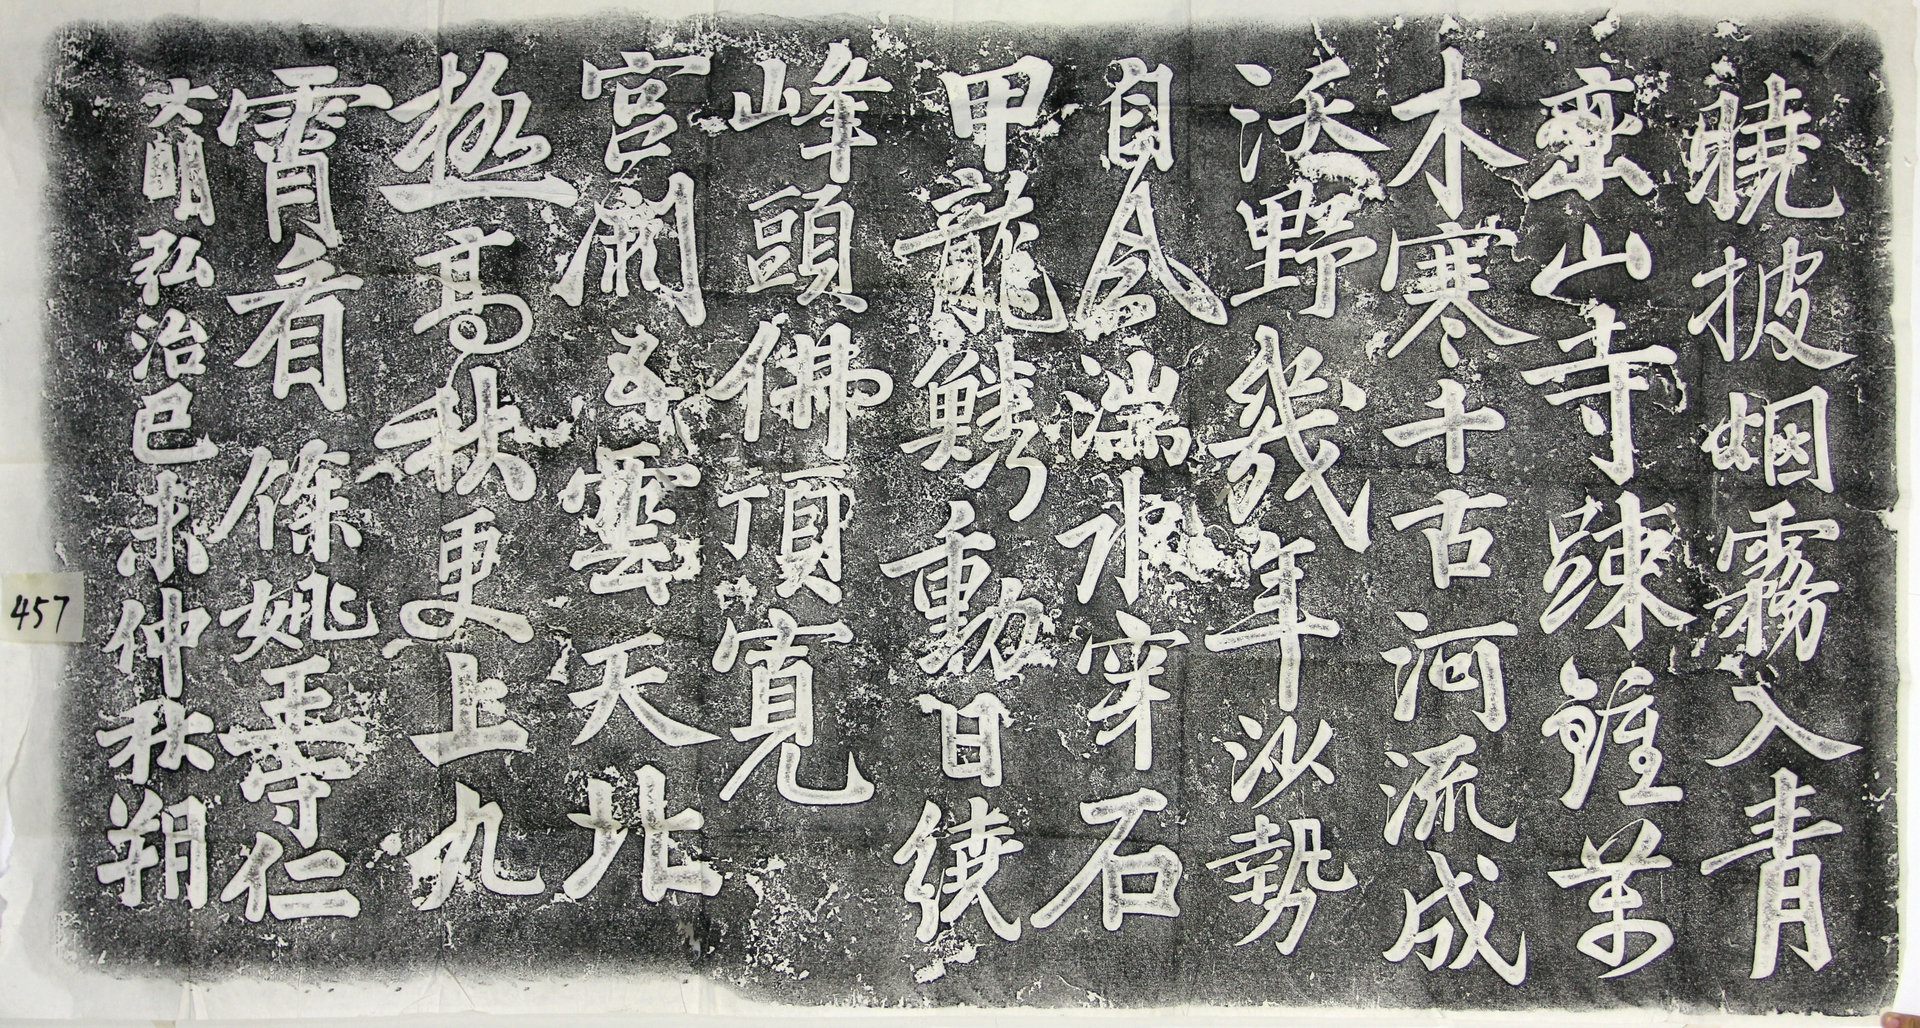 曉披烟霧入青
巒山寺踈鍾萬
木寒千古河流成
沃野幾年沙勢
自風湍水穿石
甲龍鱗動日繞
峰頭佛頂寬
宮闕五雲天北
極高秋更上九
霄看 餘姚王守仁
大明弘治己未仲秋朔
457